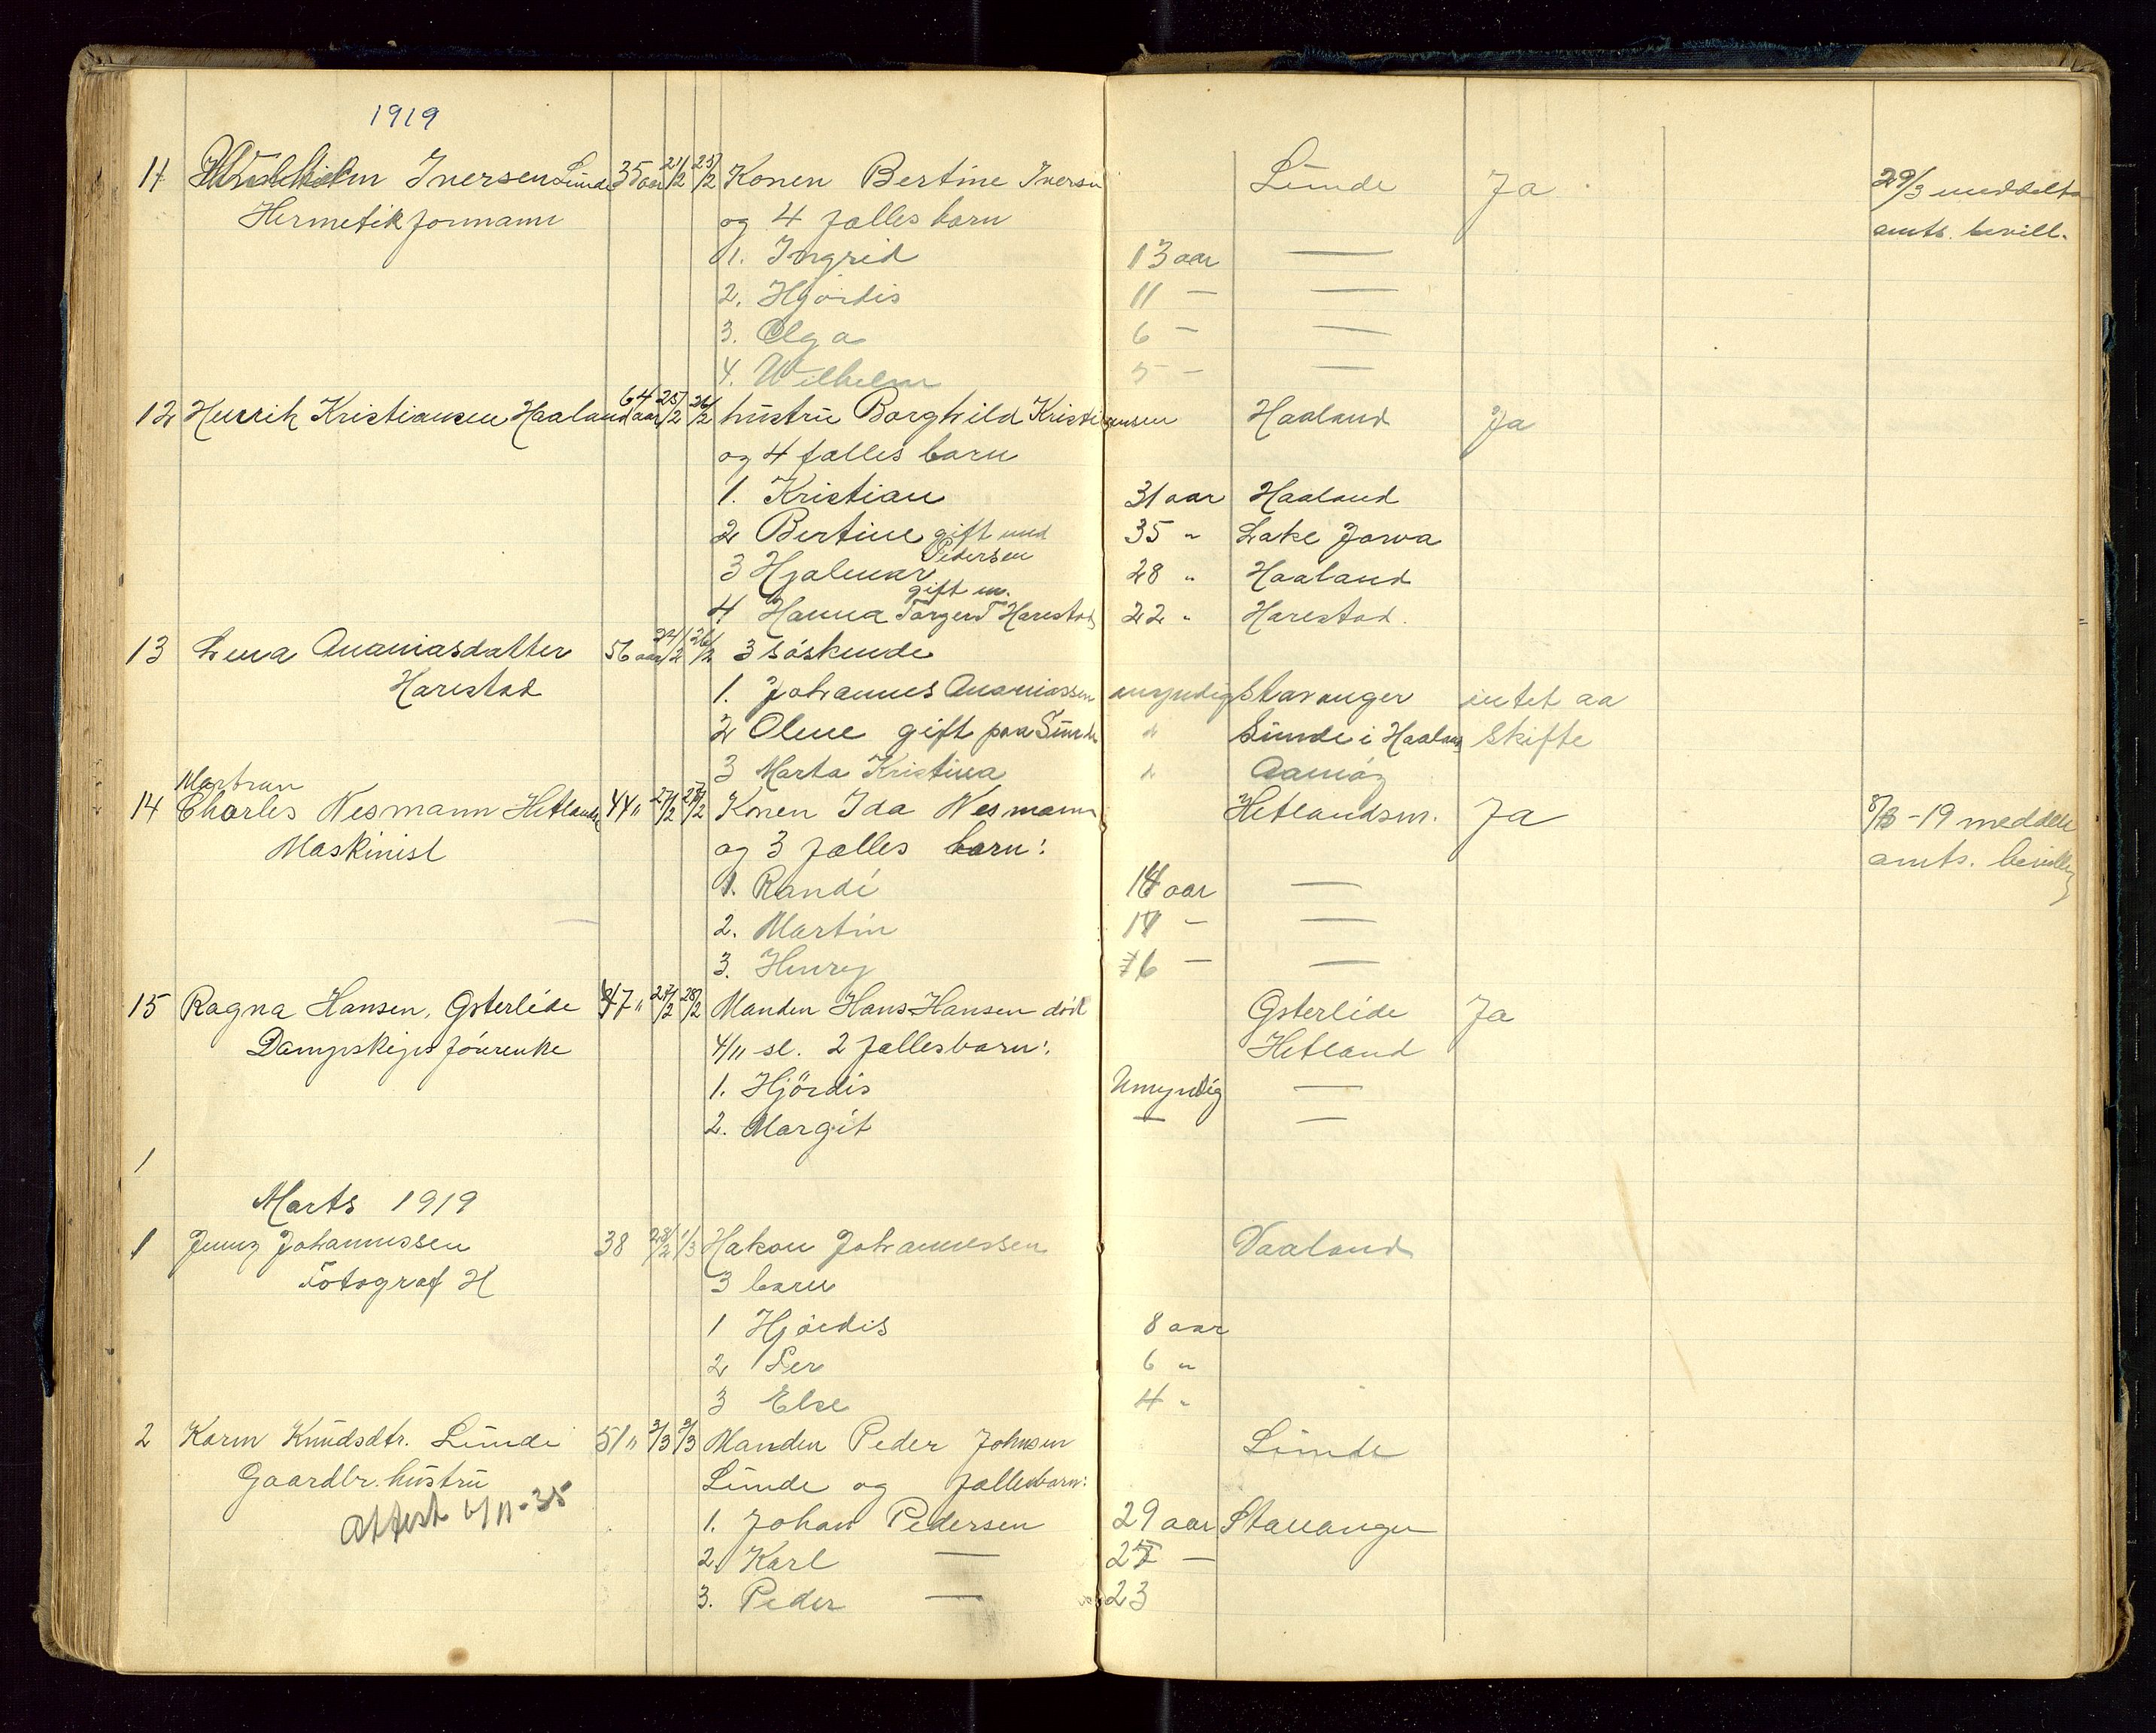 1919
11 Wilhelm Iversen Lunde 35 aar 21/2 25/2 Konen Bertine Iversen Lunde Ja 29/3 meddelt
Hermetikformann og 4 fælles barn amts. bevill.
1. Ingrid 13 aar —
2. Hjørdis 11 — —
3. Olga 6 — —
4. Wilhelm 5 — —
12 Henrik Kristiansen Haaland 64 aar 25/2 26/2 hustru Borghild Kristiansen Haaland Ja
og 4 fælles barn
1. Kristian 31 aar Haaland
2 Bertine gift med Pedersen 35 " Lake Jowa
3 Hjalmar 28 " Haaland
4 Hanna gift m. Torger T Harestad 22 " Harestad.
13 Lena Ananiasdatter 56 aar 24/2 26/2 3 søskende
Harestad 1. Johannes Ananiassen umyndig Stavanger intet aa
2 Olene gift paa Sunde " Sunde i Haaland Skifte
3 Marta Kristina " Aamøy
Martran
14 Charles Nesmann Hetlandsm 44 " 27/2 27/2 Konen Ida Nesmann Hetlandsm. Ja 8/3 -19 meddelt
Maskinist og 3 fælles barn: amts. bevilling
1. Randi 18 aar —
2. Martin 17 — —
3. Henry 16 — —
15 Ragna Hansen, Østerlide 47 " 27/2 28/2 Manden Hans Hansen død Østerlide Ja
Dampskips førerenke 4/11 sl. 2 fællesbarn: Hetland
1. Hjördis Umyndig —
2. Margit — —
1
Marts 1919
1 Jenny Johannessen 38 28/2 1/3 Hakon Johannessen Vaaland
Fotograf H 3 barn
1 Hjørdis 8 aar
2 Per 6 "
3 Else 4 "
2 Karen Knudsdtr. Lunde 51 " 3/3 3/3 Manden Peder Johnsen Lunde
Gaardbr. hustru Lunde og fællesbarn:
Attest 6/11-35
1. Johan Pedersen 29 aar Stavanger
2. Karl — 27 —
3. Peder — 23